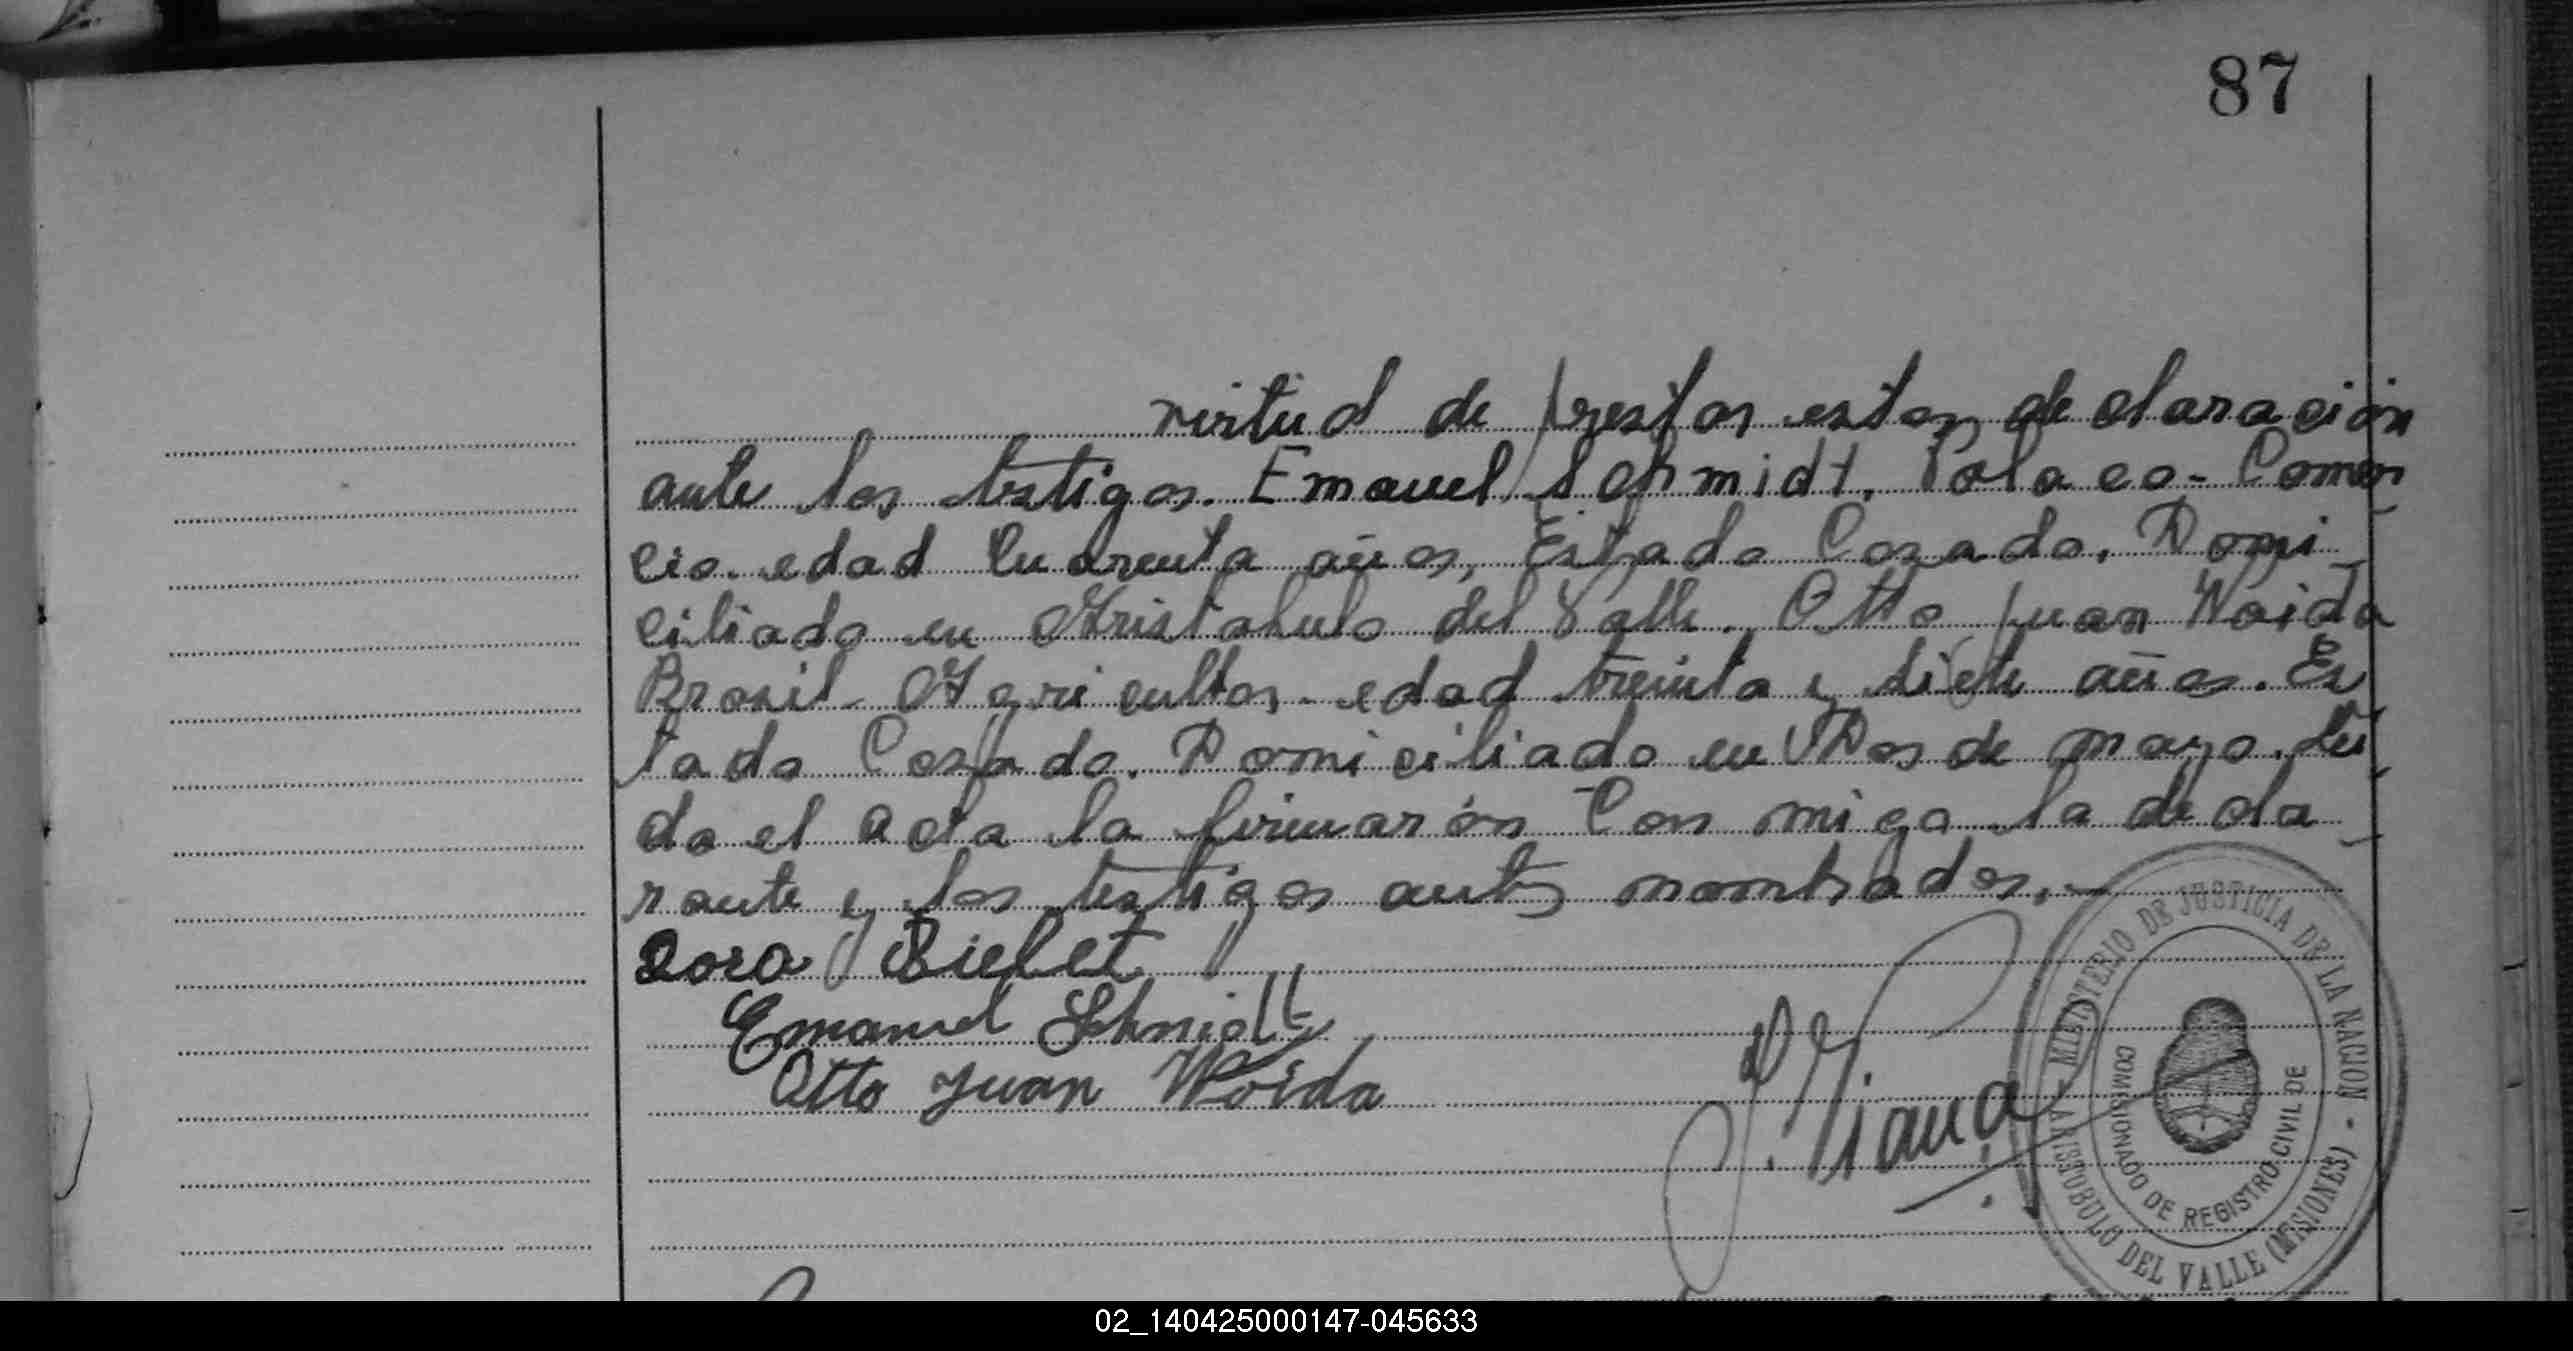 87
virtud de prestar estar declaración
ante los testigos. Emanuel Schmidt. Polaco - Comer
cio. edad Cuarenta años, Estado Casado. Domi
ciliado en Aristobulo del Valle. Otto Juan Woida
Brasil - Agricultor - edad treinta y siete años. Es
tado Casado. Domiciliado en Dos de mayo. Lei
da el acta la firmarón Con migo la decla
rante y los testigos antes nombrados.
Dora Sielet
Emanuel Schmidt
Otto Juan Woida
MINISTERIO DE JUSTICIA DE LA NACION - ARISTOBULO DEL VALLE (MISIONES)
COMISIONADO DE REGISTRO CIVIL DE
02_140425000147-045633